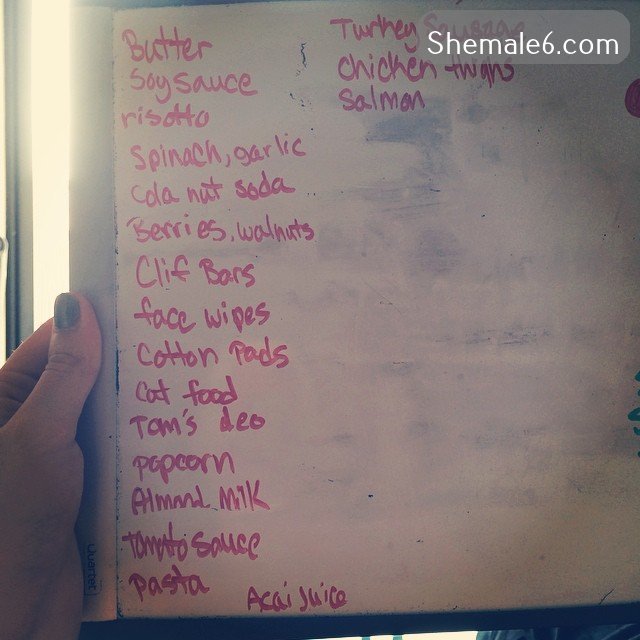 Butter
Soysauce
risotto
Spinach, garlic
Cola nut soda
Berries, walnuts
Clif Bars
face wipes
Cotton Pads
Cat food
Tom's deo
popcorn
Almond Milk
Tomato sauce
pasta
Acai Juice
Turkey
chicken thighs
Salmon
Shemale6.com
Quartet